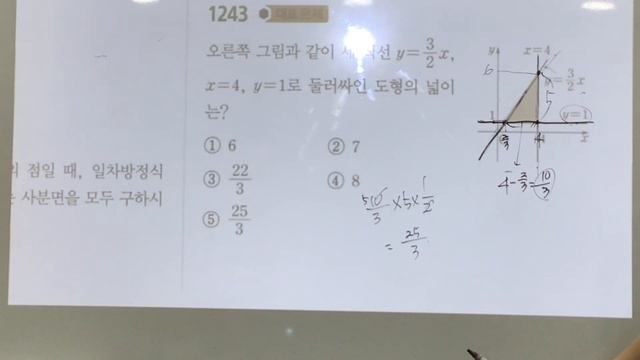 1243 대표 문제
오른쪽 그림과 같이 세 직선 y=3/2x,
x=4, y=1로 둘러싸인 도형의 넓이
는?
① 6 ② 7
③ 22/3 ④ 8
⑤ 25/3
점일 때, 일차방정식
사분면을 모두 구하시
y x=4
6
y=3/2x
5
1 y=1
2/3 4 x
4-2/3=10/3
5 10/3×5×1/2
=25/3